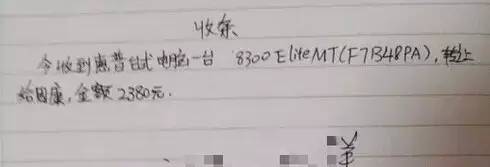 收条
今收到惠普台式电脑一台 8300 Elite MT(F7B48PA), 转上
给国库, 金额 2380元.